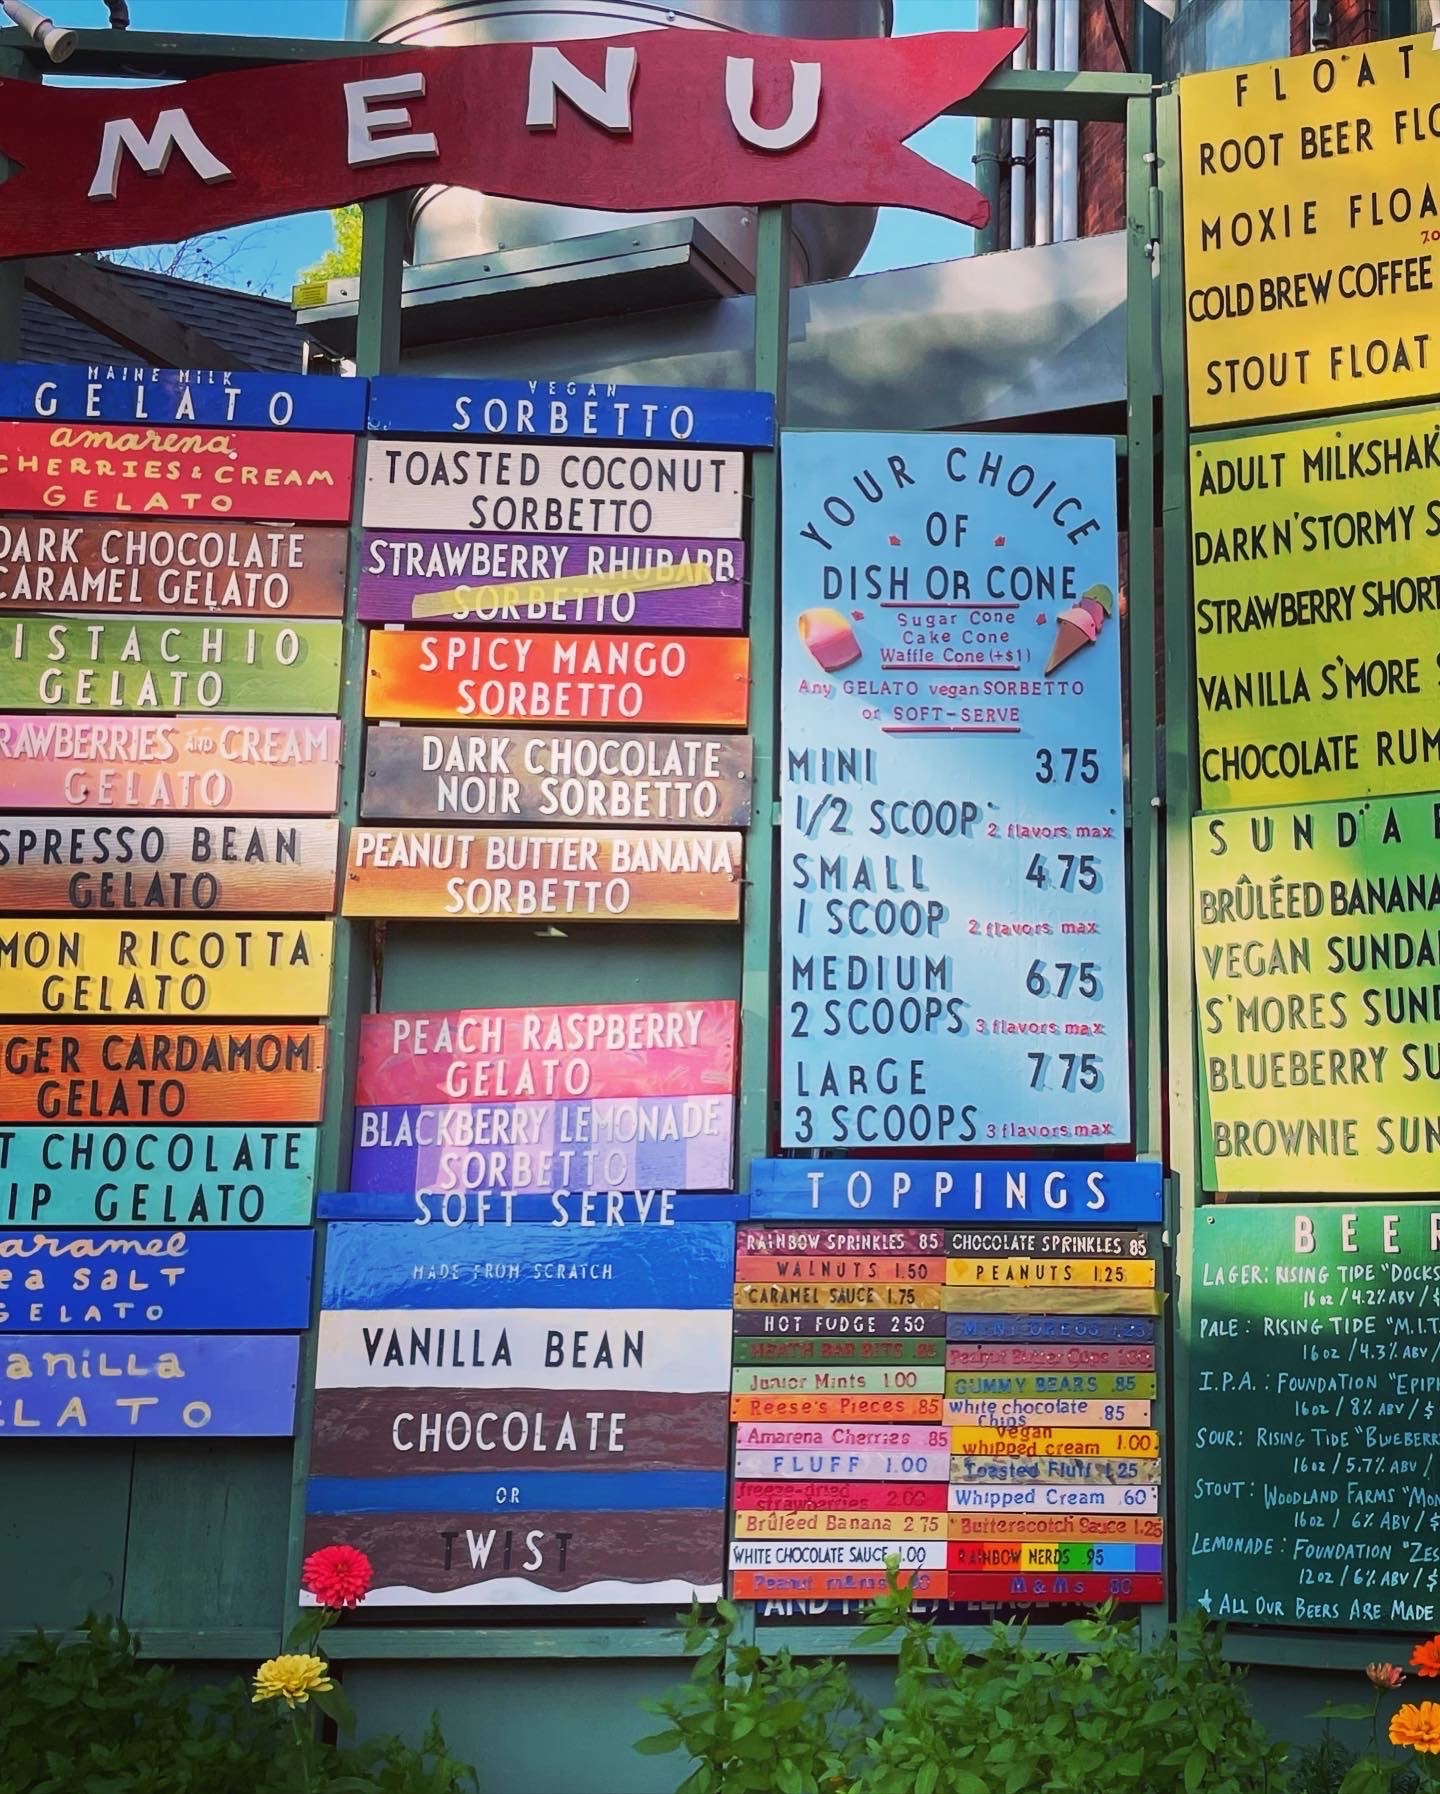 MENU
MAINE MILK
GELATO
amarena
CHERRIES & CREAM
GELATO
DARK CHOCOLATE
CARAMEL GELATO
ISTACHIO
GELATO
RAWBERRIES AND CREAM
GELATO
SPRESSO BEAN
GELATO
MON RICOTTA
GELATO
GER CARDAMOM
GELATO
T CHOCOLATE
IP GELATO
aramel
ea SALT
GELATO
anilla
ELATO
VEGAN
SORBETTO
TOASTED COCONUT
SORBETTO
STRAWBERRY RHUBARB
SORBETTO
SPICY MANGO
SORBETTO
DARK CHOCOLATE
NOIR SORBETTO
PEANUT BUTTER BANANA
SORBETTO
PEACH RASPBERRY
GELATO
BLACKBERRY LEMONADE
SORBETTO
SOFT SERVE
MADE FROM SCRATCH
VANILLA BEAN
CHOCOLATE
OR
TWIST
YOUR CHOICE
OF
DISH OR CONE
Sugar Cone
Cake Cone
Waffle Cone (+$1)
Any GELATO vegan SORBETTO
or SOFT-SERVE
MINI 3.75
1/2 SCOOP 2 flavors max
SMALL 4.75
1 SCOOP 2 flavors max
MEDIUM 6.75
2 SCOOPS 3 flavors max
LARGE 7.75
3 SCOOPS 3 flavors max
TOPPINGS
RAINBOW SPRINKLES .85 CHOCOLATE SPRINKLES .85
WALNUTS 1.50 PEANUTS 1.25
CARAMEL SAUCE 1.75
HOT FUDGE 2.50 MINI OREOS 1.25
HEATH BAR BITS .85 Peanut Butter Cups 1.00
Junior Mints 1.00 GUMMY BEARS .85
Reese's Pieces .85 white chocolate
Chips .85
Amarena Cherries .85 vegan
whipped cream 1.00
FLUFF 1.00 Toasted Fluff 1.25
freeze-dried
strawberries 2.00 Whipped Cream .60
Brûléed Banana 2.75 Butterscotch Sauce 1.25
WHITE CHOCOLATE SAUCE 1.00 RAINBOW NERDS .95
Peanut m&ms M&Ms .80
AND PLEASE
FLOAT
ROOT BEER FLO
MOXIE FLOA
7.0
COLD BREW COFFEE
STOUT FLOAT
ADULT MILKSHAK
DARK N' STORMY S
STRAWBERRY SHORT
VANILLA S'MORE
CHOCOLATE RUM
SUNDA
BRÛLÉED BANANA
VEGAN SUNDA
S'MORES SUND
BLUEBERRY SU
BROWNIE SUN
BEER
LAGER: RISING TIDE "DOCKS
16 oz / 4.2% ABV / $
PALE: RISING TIDE "M.I.T.
16 oz / 4.3% ABV /
I.P.A.: FOUNDATION "EPIPH
16 oz / 8% ABV / $
SOUR: RISING TIDE "BLUEBERR
16 oz / 5.7% ABV /
STOUT: WOODLAND FARMS "MON
16 oz / 6% ABV / $
LEMONADE: FOUNDATION "ZES
12 oz / 6% ABV / $
★ ALL OUR BEERS ARE MADE